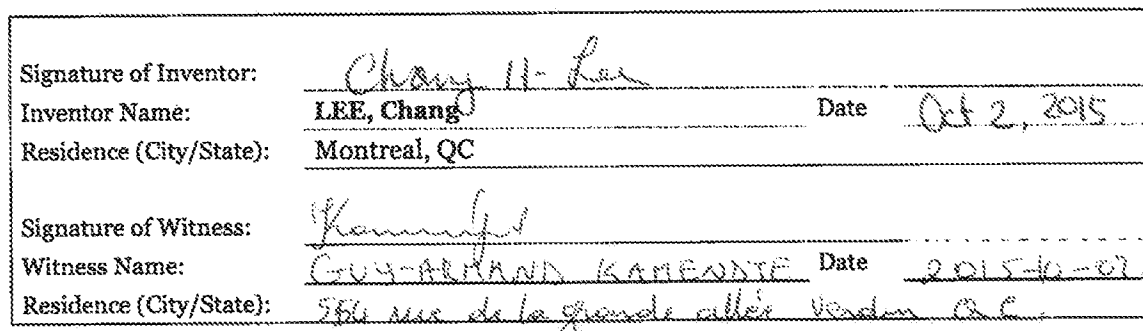 Signature of Inventor: Chang H- Lee
Inventor Name: LEE, Chang Date Oct 2, 2015
Residence (City/State): Montreal, QC
Signature of Witness:
Witness Name: GUY-ARMAND KAMENDJE Date 2015-10-02
Residence (City/State): rue de la grande allée Verdun QC.